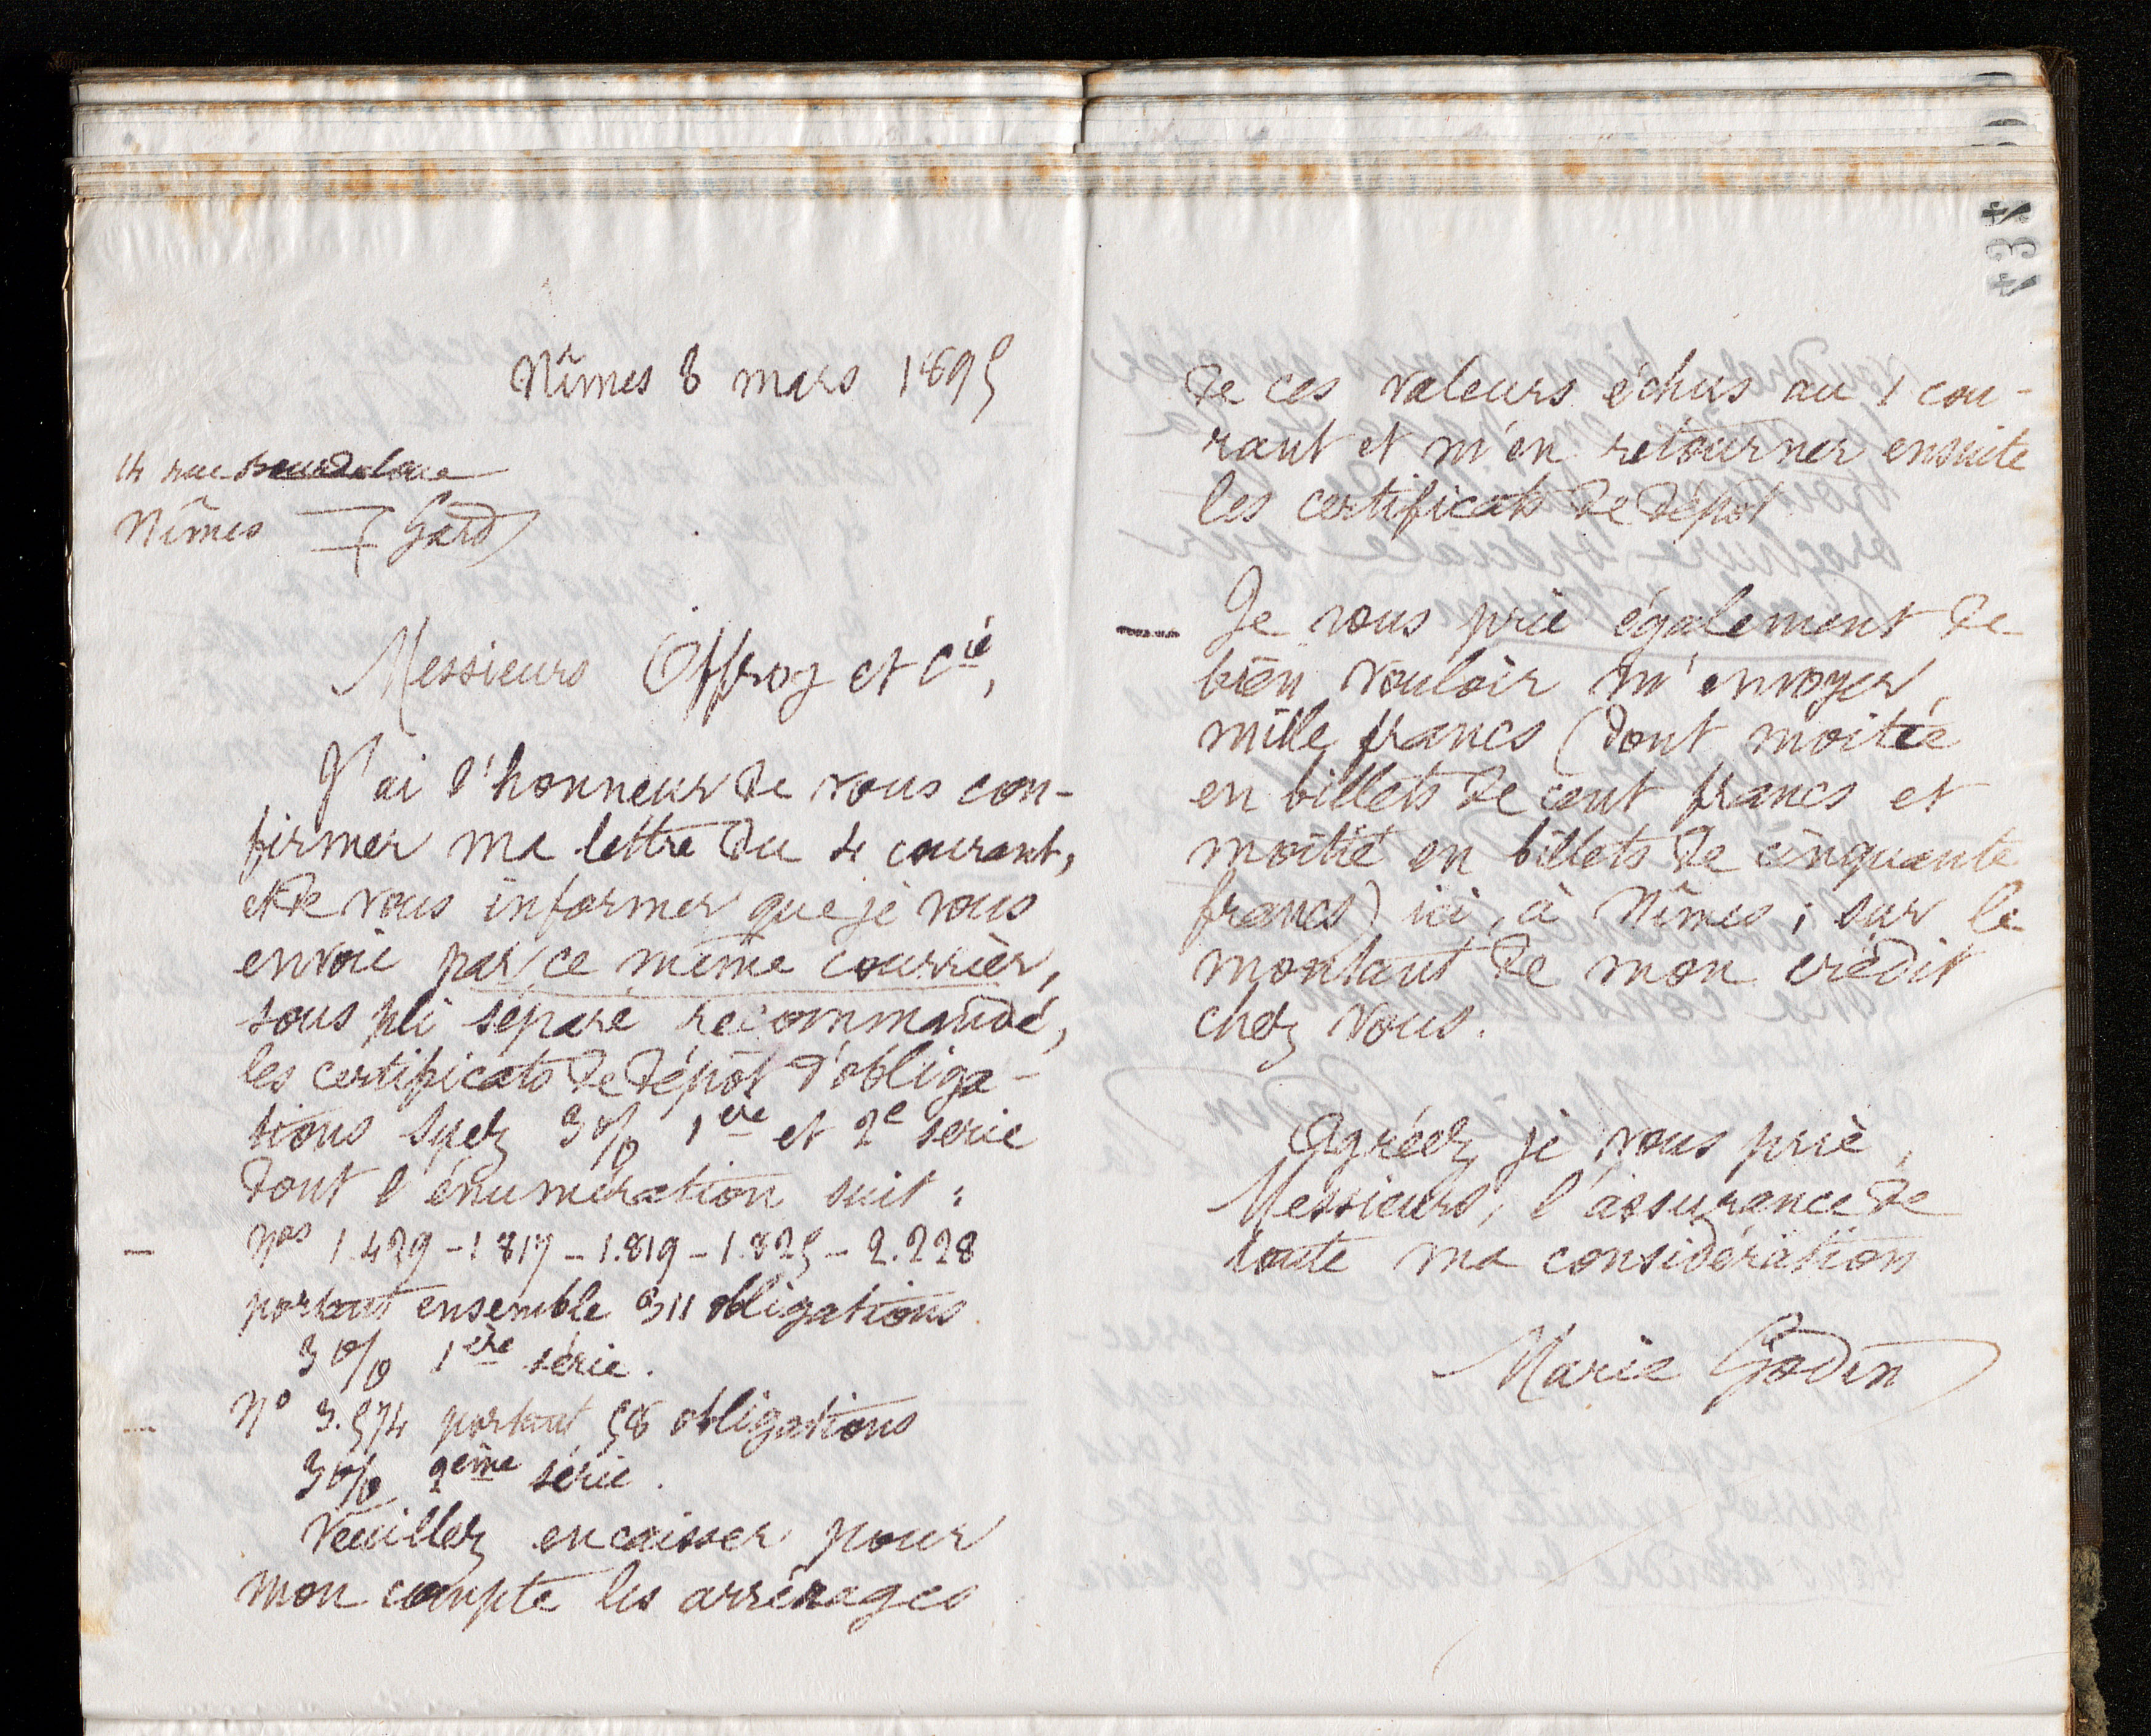 Nîmes 8 mars 1895
14 rue Bourdaloue
Nîmes Gard
Messieurs Offroy et Cie,
J'ai l'honneur de vous con-
firmer ma lettre du 4 courant,
et de vous informer que je vous
envoie par ce même courrier,
sous pli séparé recommandé,
les certificats de dépôt d'obliga-
tions Suez 3% 1ère et 2e série
dont l'énumération suit :
Nos 1.429 - 1.817 - 1.819 - 1.825 - 2.228
portant ensemble 311 obligations
3% 1ère série.
No 3.574 portant 58 obligations
3% 2ème série.
Veuillez encaisser pour
mon compte les arrérages
de ces valeurs échus au 1 cou-
rant et m'en retourner ensuite
les certificats de dépôt
Je vous prie également de
bien vouloir m'envoyer
mille francs (dont moitié
en billets de cent francs et
moitié en billets de cinquante
francs) ici, à Nîmes ; sur le
montant de mon crédit
chez vous.
Agréez, je vous prie,
Messieurs, l'assurance de
toute ma considération
Marie Godin